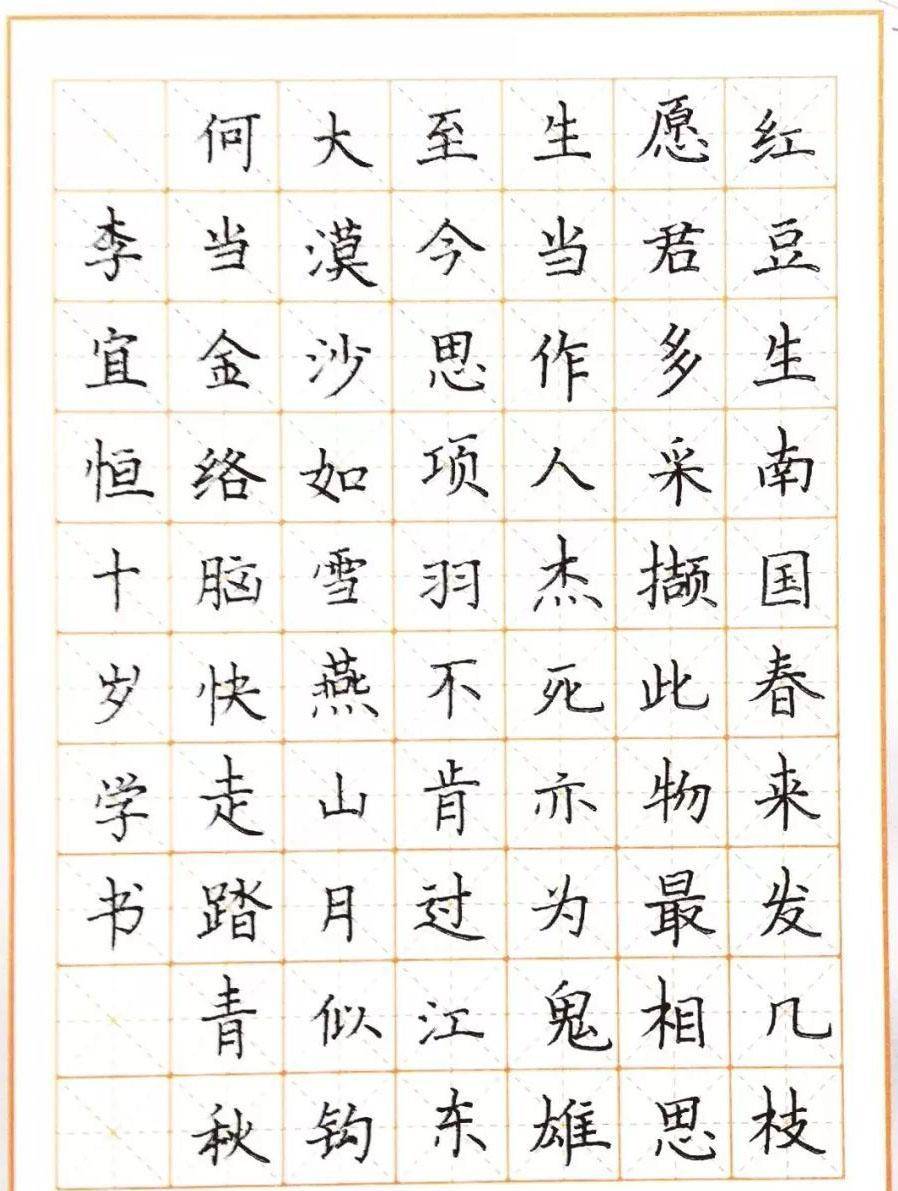 红豆生南国春来发几枝
愿君多采撷此物最相思
生当作人杰死亦为鬼雄
至今思项羽不肯过江东
大漠沙如雪燕山月似钩
何当金络脑快走踏青秋
李宜恒十岁学书